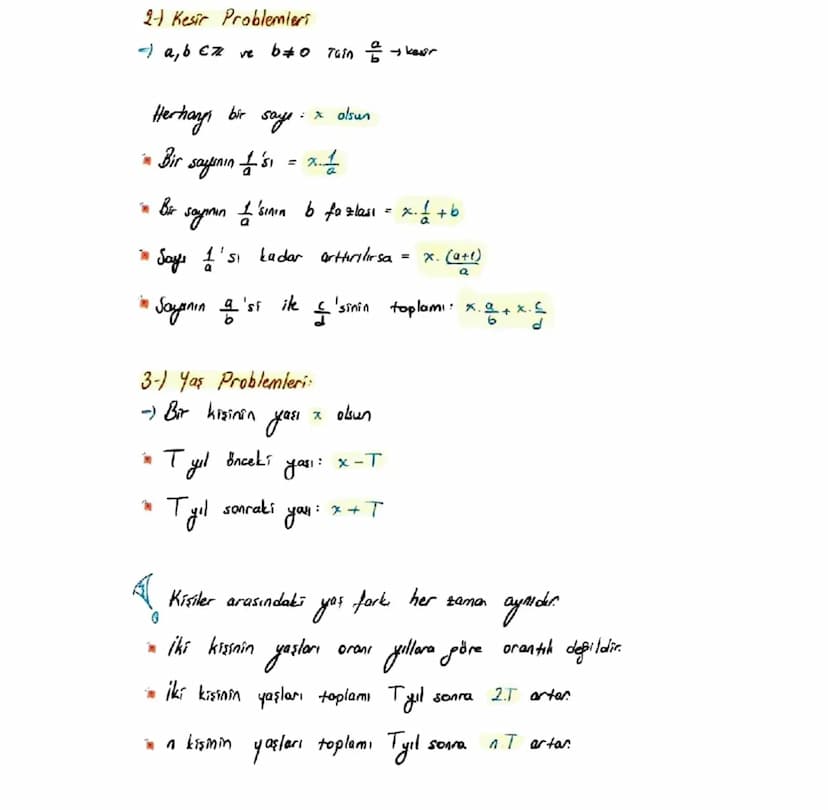 2-) Kesir Problemleri
→) a, b ∈ Z ve b≠0 için a/b → kesir
Herhangi bir sayı : x olsun
Bir sayının 1/a 'sı = x.1/a
Bir sayının 1/a 'sının b fazlası = x.1/a + b
Sayı 1/a 'sı kadar arttırılırsa = x. (a+1)/a
Sayının a/b 'si ile c/d 'sinin toplamı: x.a/b + x.c/d
3-) Yaş Problemleri:
→) Bir kişinin yaşı x olsun
T yıl önceki yaşı: x - T
T yıl sonraki yaşı: x + T
Kişiler arasındaki yaş farkı her zaman aynıdır.
İki kişinin yaşları oranı yıllara göre orantılı değildir.
İki kişinin yaşları toplamı T yıl sonra 2.T artar.
n kişinin yaşları toplamı T yıl sonra nT artar.